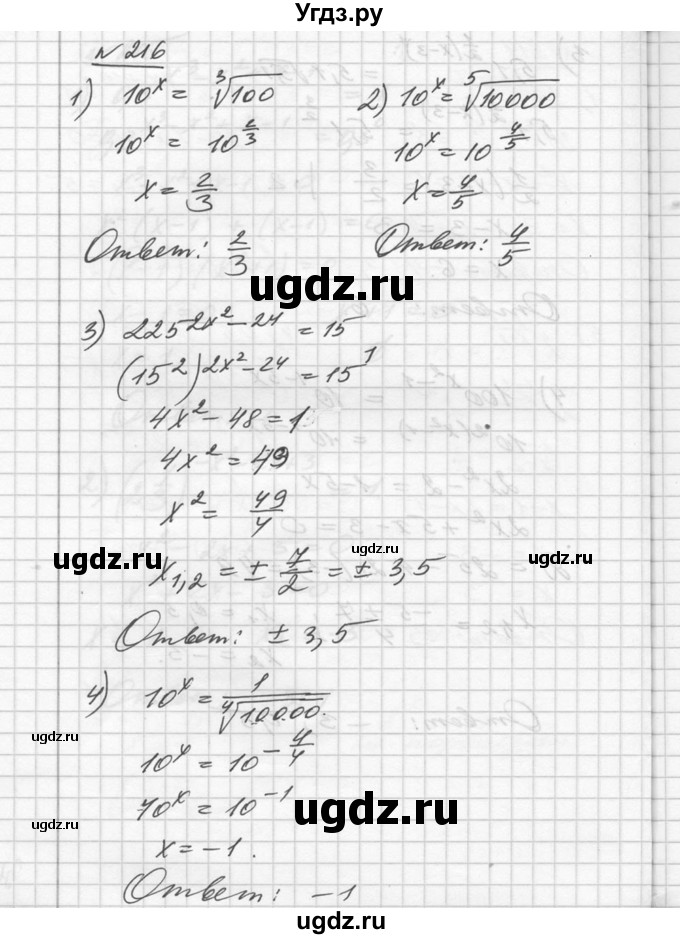 Угдз.ру
№ 216
1) 10^x = ∛100
10^x = 10^(2/3)
x = 2/3
Ответ: 2/3
2) 10^x = ⁵√10000
10^x = 10^(4/5)
x = 4/5
Ответ: 4/5
ugdz.ru
3) 225^(2x²-24) = 15
(15²)^(2x²-24) = 15^1
4x² - 48 = 1
4x² = 49
x² = 49/4
x1,2 = ± 7/2 = ± 3,5
ugdz.ru
ugdz.ru
ugdz.ru
Ответ: ± 3,5
4) 10^x = 1/⁴√10000
ugdz.ru
10^x = 10^(-4/4)
10^x = 10^(-1)
ugdz.ru
ugdz.ru
x = -1.
Ответ: -1
ugdz.ru